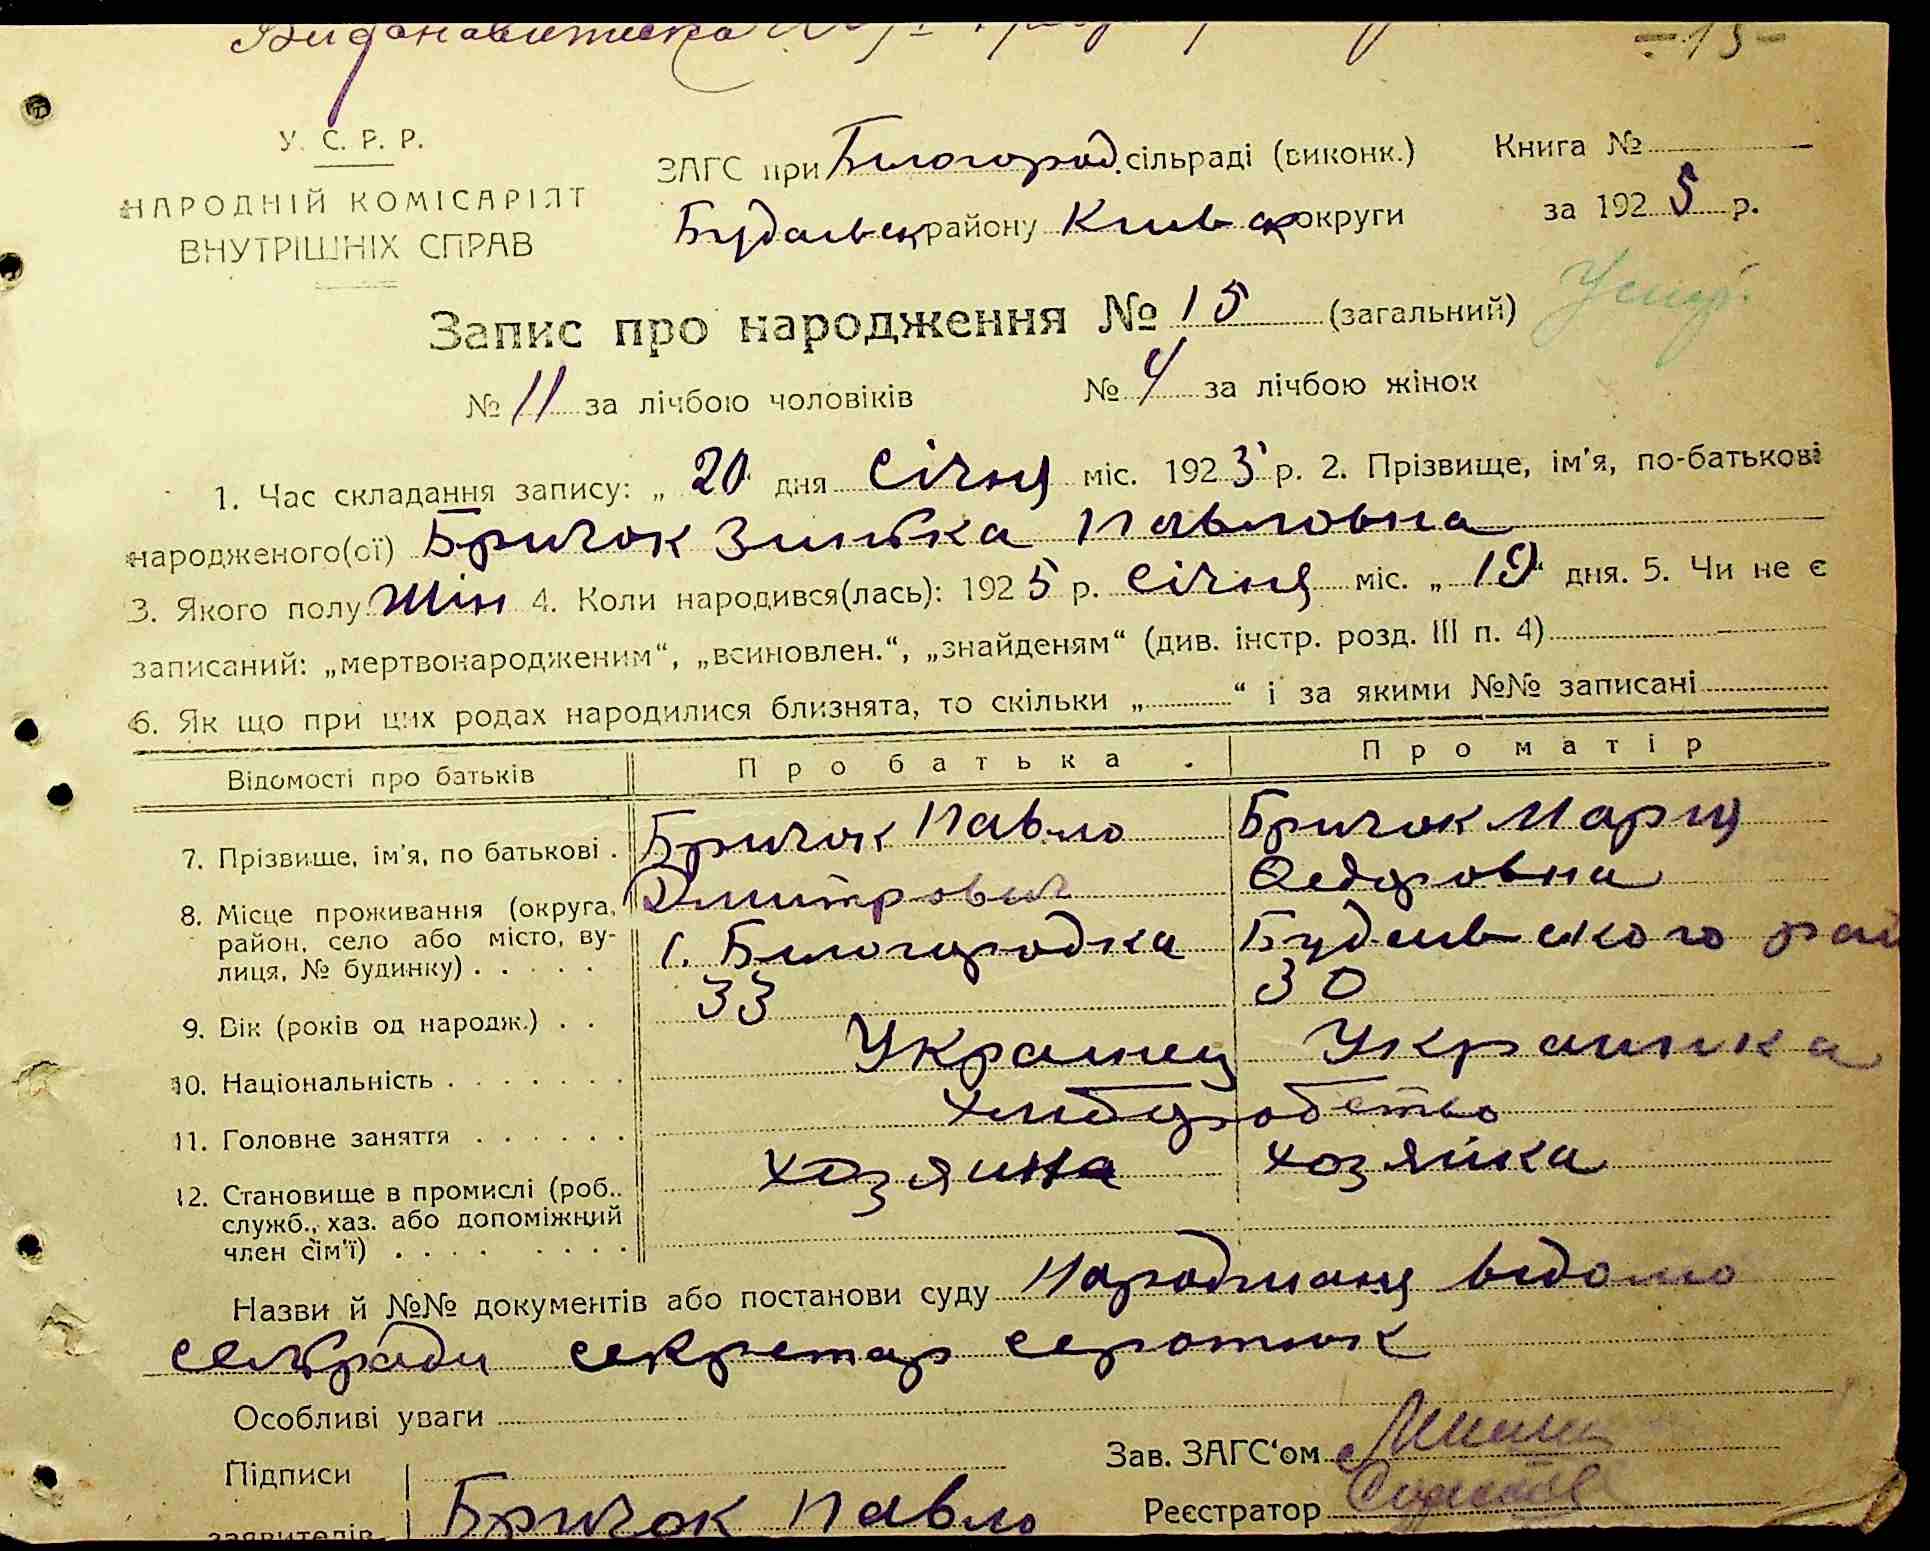 - 15 -
У. С. Р. Р.
НАРОДНІЙ КОМІСАРІЯТ
ВНУТРІШНІХ СПРАВ
ЗАГС при Білогород. сільраді (виконк.)
Будаївськ району Київськ округи
Книга №
за 1925 р.
Запис про народження № 15 (загальний)
№ 11 за лічбою чоловіків № 4 за лічбою жінок
1. Час складання запису: „ 20 дня Січня міс. 1925 р. 2. Прізвище, ім'я, по-батькові
народженого(ої) Бричок Зинька Павловна
3. Якого полу Жін 4. Коли народився(лась): 1925 р. Січня міс. „ 19 “ дня. 5. Чи не є
записаний: „мертвонародженим“, „всиновлен.“, „знайденям“ (див. інстр. розд. III п. 4)
6. Як що при цих родах народилися близнята, то скільки „ “ і за якими №№ записані
Відомості про батьків Про батька Про матір
7. Прізвище, ім'я, по батькові . Бричок Павло Бричок Мария
Дмитрович Федоровна
8. Місце проживання (округа, район, село або місто, вулиця, № будинку) . . . . . с. Білогородка Будаївського рай
9. Вік (років од народж.) . . 33 30
10. Національність . . . . . . . Украинец Украинка
11. Головне заняття . . . . . . Хліборобство
12. Становище в промислі (роб.. служб., хаз. або допоміжний член сім'ї) . . . . . . . . Хозяина хозяйка
Назви й №№ документів або постанови суду Народження відомо
сельради секретар Сиротюк
Особливі уваги
Зав. ЗАГС‘ом
Підписи
Реєстратор
заявителів Бричок Павло